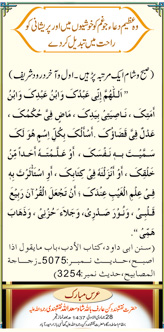 وہ عظیم دعا، جو غم کو خوشیوں میں اور پریشانی کو
راحت میں تبدیل کر دے
(صبح و شام ایک مرتبہ پڑھیں۔ اول و آخر درود شریف)
"اَللّٰهُمَّ إِنِّي عَبْدُكَ وَابْنُ عَبْدِكَ وَابْنُ
أَمَتِكَ، نَاصِيَتِي بِيَدِكَ، مَاضٍ فِيَّ حُكْمُكَ،
عَدْلٌ فِيَّ قَضَاؤُكَ، أَسْأَلُكَ بِكُلِّ اسْمٍ هُوَ لَكَ
سَمَّيْتَ بِهِ نَفْسَكَ، أَوْ عَلَّمْتَهُ أَحَدًا مِنْ
خَلْقِكَ، أَوْ أَنْزَلْتَهُ فِي كِتَابِكَ، أَوِ اسْتَأْثَرْتَ بِهِ
فِي عِلْمِ الْغَيْبِ عِنْدَكَ، أَنْ تَجْعَلَ الْقُرْآنَ رَبِيعَ
قَلْبِي، وَنُورَ صَدْرِي، وَجِلَاءَ حُزْنِي، وَذَهَابَ
هَمِّي"۔
(سنن ابی داود، کتاب الأدب، باب مایقول اذا
اصبح، حدیث نمبر: 5075، زجاجة
المصابیح، حدیث نمبر: 3254)
عرس مبارک